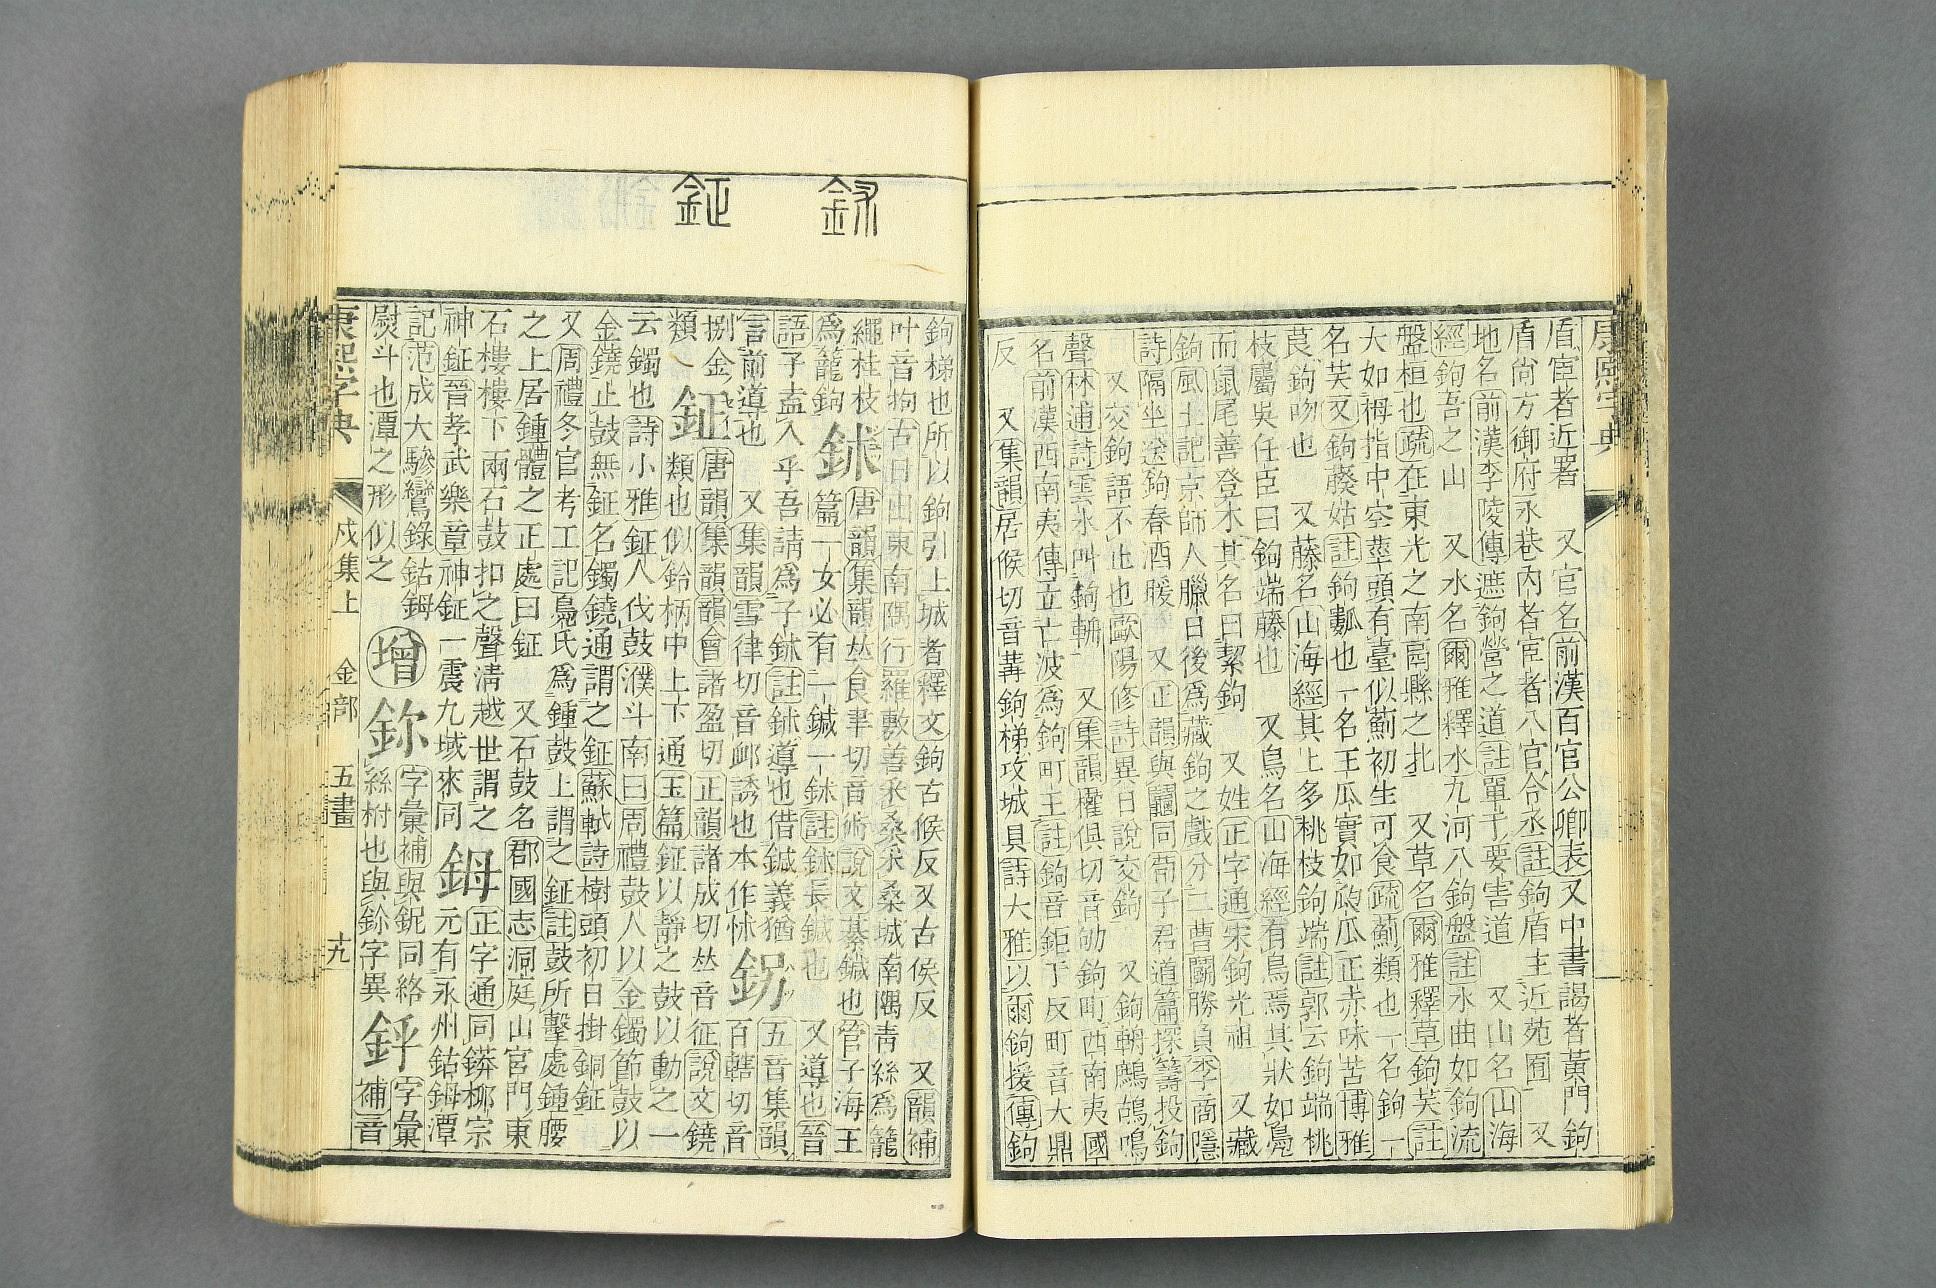 釴
鉦
盾宦者近署　又官名前漢百官公卿表又中書謁者黃門鉤
盾尙方御府永巷內者宦者八官令丞註鉤盾主近苑囿　又
地名前漢李陵傳遮鉤營之道註單于要害道　又山名山海
經鉤吾之山　又水名爾雅釋水九河八鉤盤註水曲如鉤流
盤桓也疏在東光之南鬲縣之北　又草名爾雅釋草鉤芺註
大如拇指中空莖頭有臺似薊初生可食疏薊類也一名鉤一
名芺又鉤藈姑註鉤𤬏也一名王瓜實如瓝瓜正赤味苦博雅
莨鉤吻也　又藤名山海經其上多桃枝鉤端註郭云鉤端桃
枝屬吳任臣曰鉤端藤也　又鳥名山海經有鳥焉其狀如鳧
而鼠尾善登木其名曰絜鉤　又姓正字通宋鉤光祖　又藏
鉤風土記京師人臘日後爲藏鉤之戲分二曹鬭勝負李商隱
詩隔坐送鉤春酒暖　又正韻與鬮同荀子君道篇探籌投鉤
又交鉤語不止也歐陽修詩異日說交鉤　又鉤輈鷓鴣鳴
聲林逋詩雲木叫鉤輈　又集韻權俱切音劬鉤町西南夷國
名前漢西南夷傳立亡波爲鉤町王註鉤音鉅于反町音大鼎
反　又集韻居候切音冓鉤梯攻城具詩大雅以爾鉤援傳鉤
鉤梯也所以鉤引上城者釋文鉤古候反又古侯反　又韻補
叶音拘古日出東南隅行羅敷善采桑采桑城南隅靑絲爲籠
繩桂枝
爲籠鉤
鉥
唐韻集韻𠀤食聿切音術說文綦鍼也管子海王
篇一女必有一鍼一鉥註鉥長鍼也　又導也晉
語子盍入乎吾請爲子鉥註鉥導也借鍼義猶
言前導也　又集韻雪律切音卹誘也本作怵
五音集韻
百轄切音
捌金
類
鉦
唐韻集韻韻會諸盈切正韻諸成切𠀤音征說文鐃
類也似鈴柄中上下通玉篇鉦以靜之鼓以動之一
云鐲也詩小雅鉦人伐鼓濮斗南曰周禮鼓人以金鐲節鼓以
金鐃止鼓無鉦名鐲鐃通謂之鉦蘇軾詩樹頭初日掛銅鉦
又周禮冬官考工記鳧氏爲鍾鼓上謂之鉦註鼓所擊處鍾腰
之上居鍾體之正處曰鉦　又石鼓名郡國志洞庭山宮門東
石樓樓下兩石鼓扣之聲淸越世謂之
神鉦晉孝武樂章神鉦一震九域來同
鉧
正字通同柳宗
元有永州鈷鉧潭
記范成大驂鸞錄鈷鉧
熨斗也潭之形似之
增
鉨
字彙補與鈮同絡
絲柎也與字異
字彙
補音
康熙字典　戍集上　金部　五畫　十九